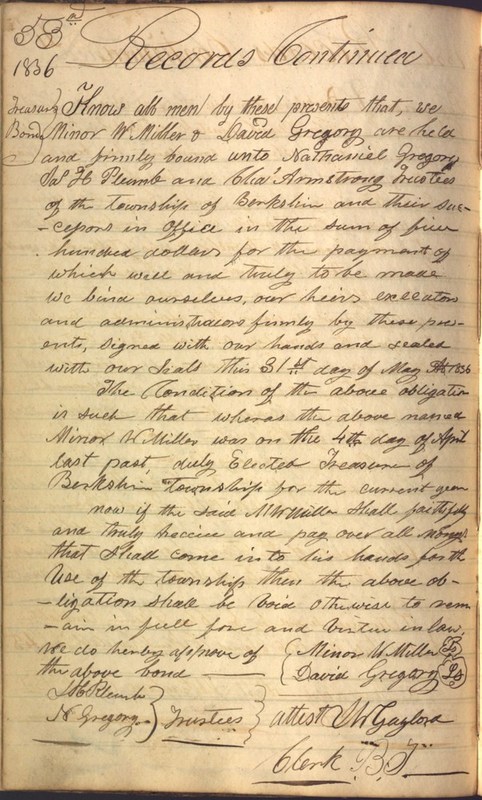 53rd
Records Continued
1836
Treasurer Bond
Know all men by these presents that, we
Minor W Miller & David Gregory are held
and firmly bound unto Nathaniel Gregory
Ja's H Plumb and Chas Armstrong Trustees
of the township of Berkshire and their suc-
-cessors in office in the sum of five
hundred dollars for the payment of
which well and truly to be made
we bind ourselves, our heirs executors
and administrators firmly by these pres-
ents, signed with our hands and sealed
with our seals this 31st day of May 1836
The Condition of the above obligation
is such that wheras the above named
Minor W Miller was on the 4th day of April
last past, duly Elected Treasurer of
Berkshire Township for the current year
now if the said M W Miller shall faithfully
and truly receive and pay over all moneys
that shall come into his hands for the
Use of the township then the above ob-
-ligation shall be void otherwise to rem
-ain in full force and virtue in law,
we do hereby approve of
the above bond
Minor W Miller Ls
David Gregory Ls
J H Plumb
N Gregory
Trustees
attest J W Gaylord
Clerk B. T.